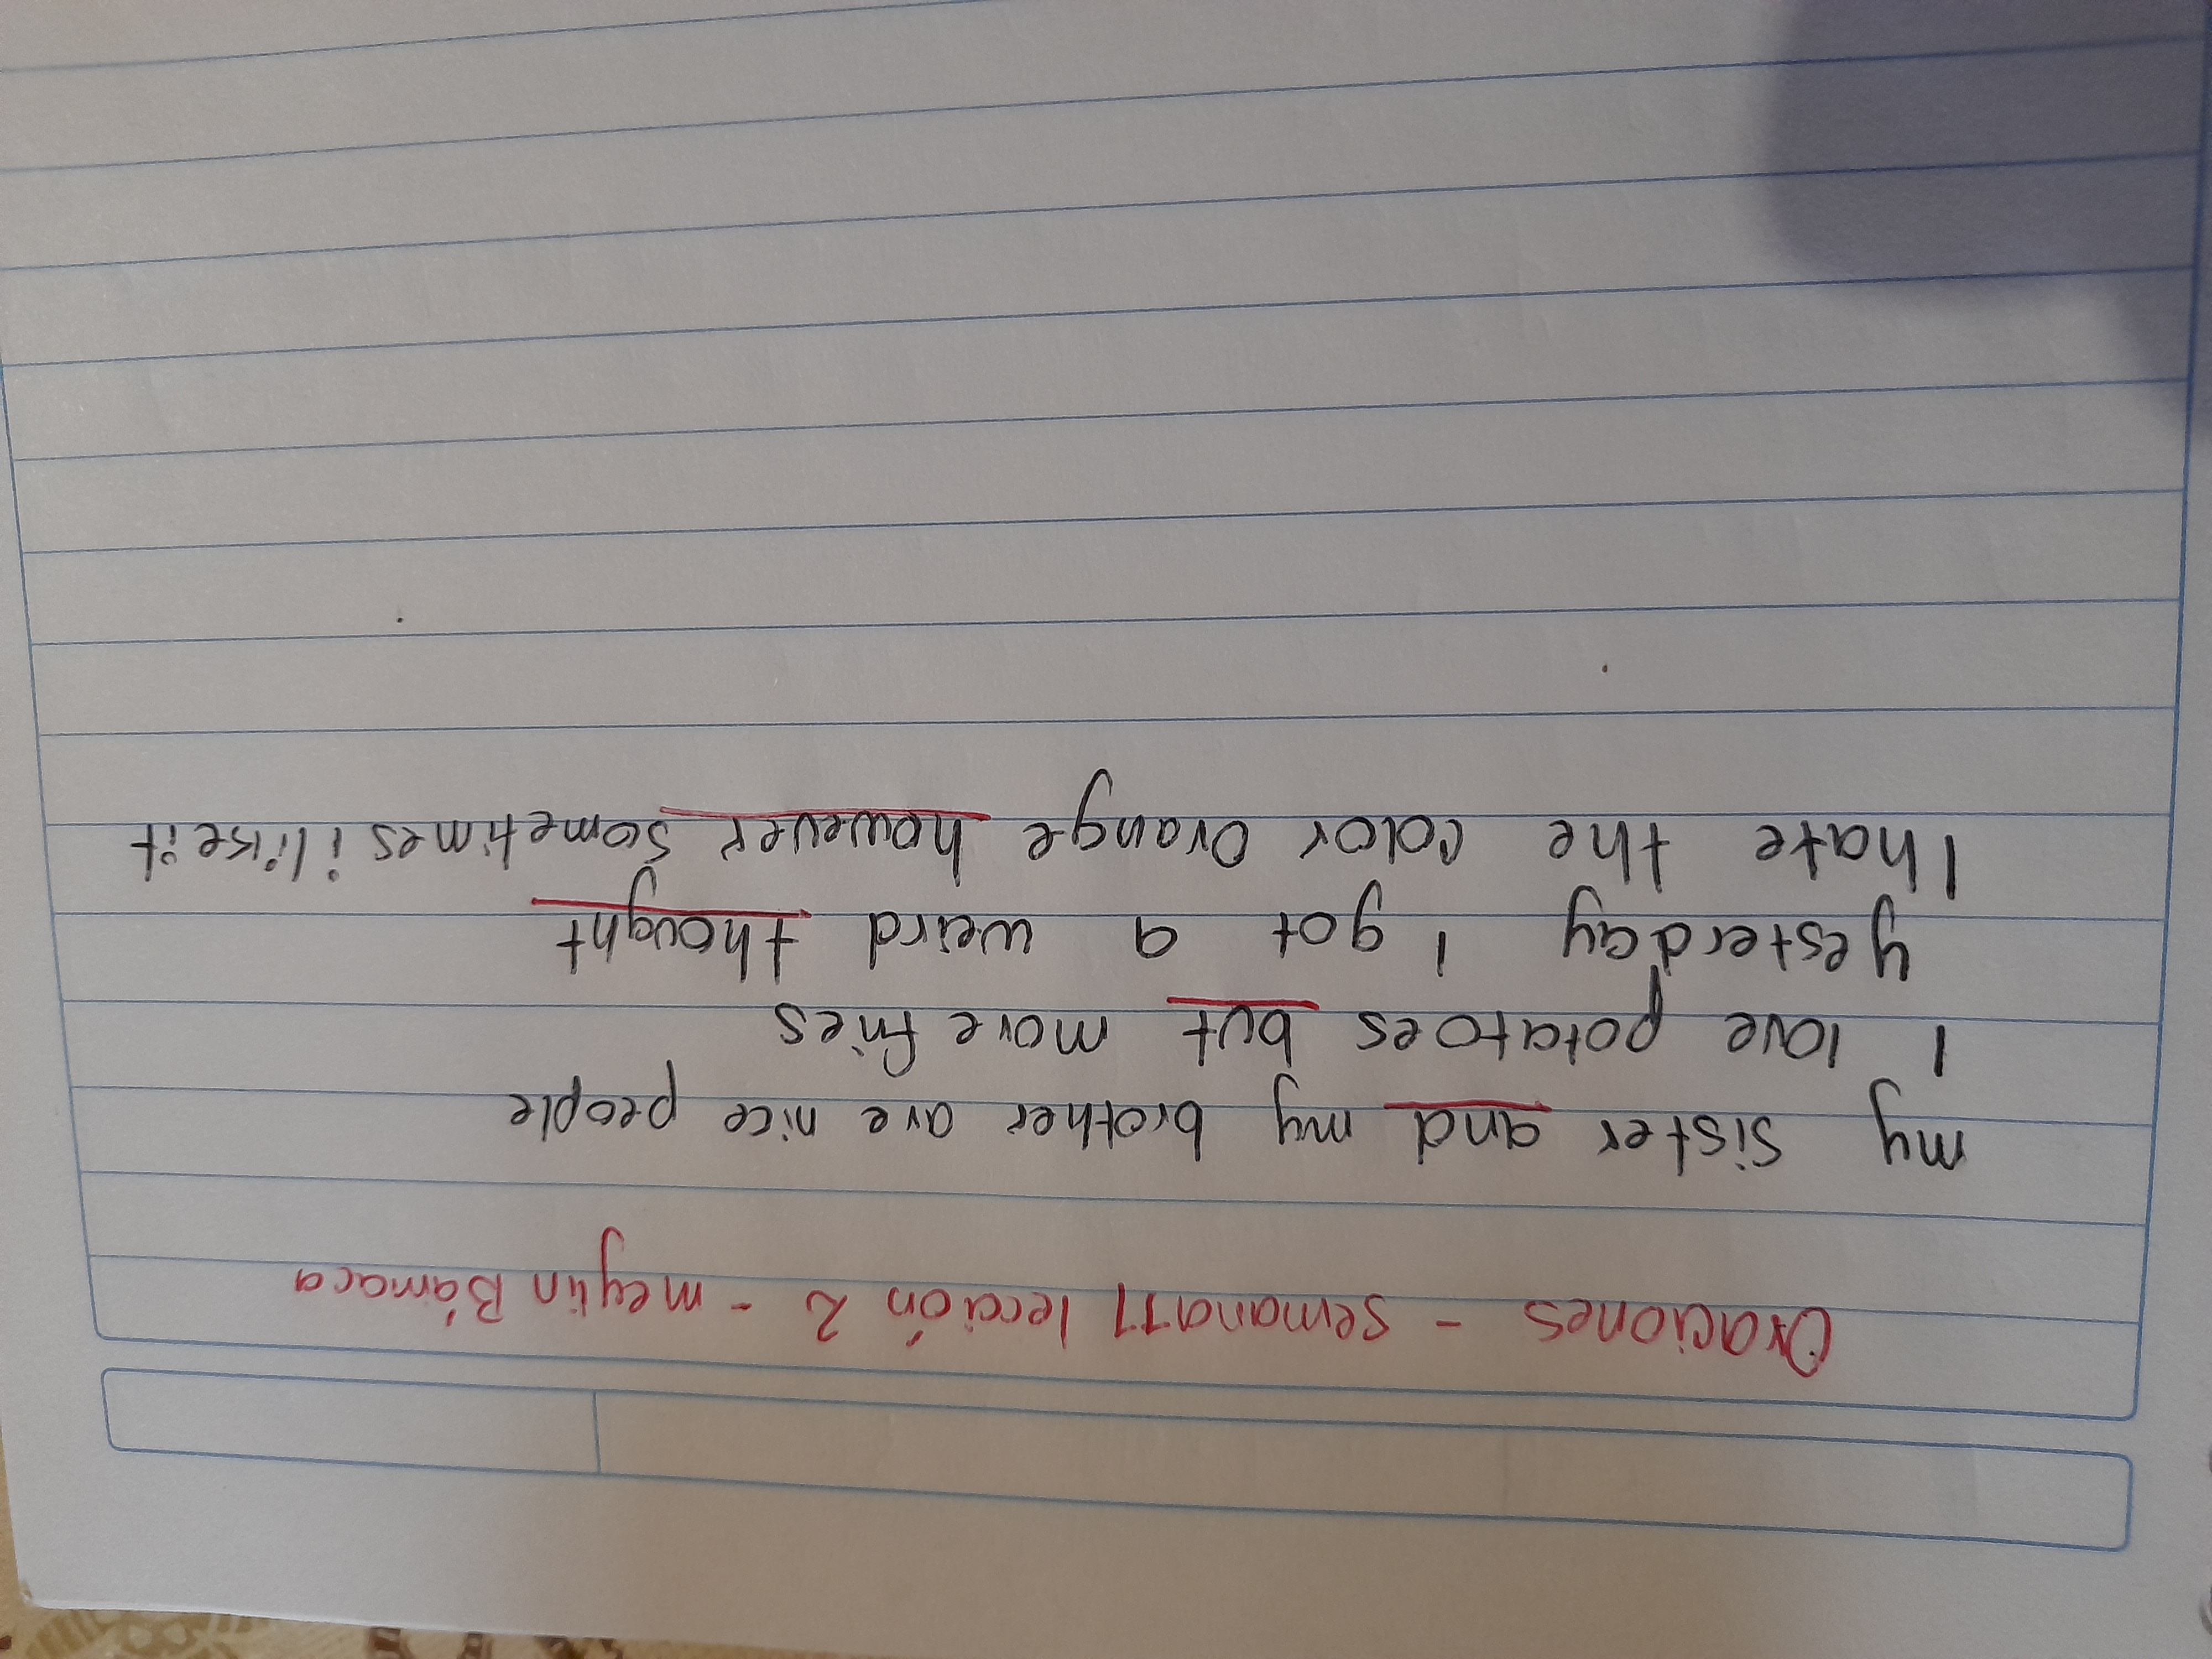 Oraciones - semana 11 lección 2 - meylin Bámaca
my sister and my brother are nice people
I love potatoes but more fries
yesterday I got a weird thought
I hate the color orange however sometimes i like it